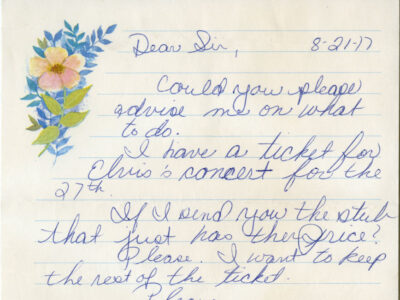 Dear Sir, 8-21-77
Could you please
advise me on what
to do.
I have a ticket for
Elvis's concert for the
27th.
If I send you the stub
that just has the price?
Please. I want to keep
the rest of the ticket.